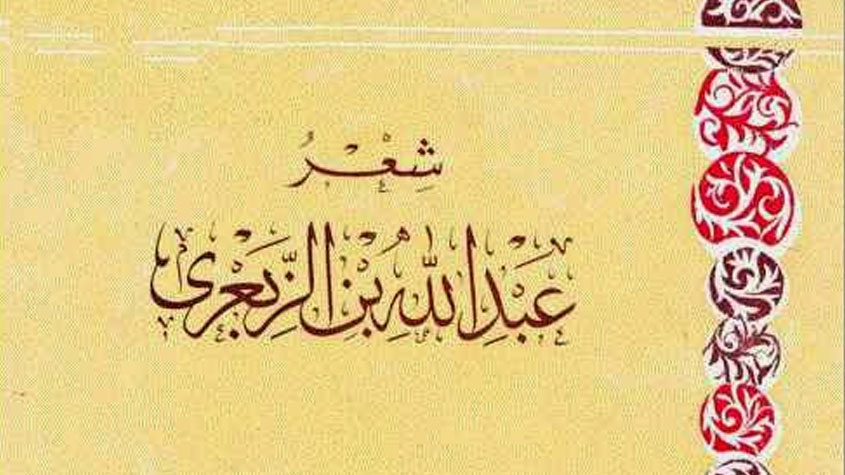 شِعْرُ
عَبْدِ اللهِ بْنِ الزِّبَعْرى